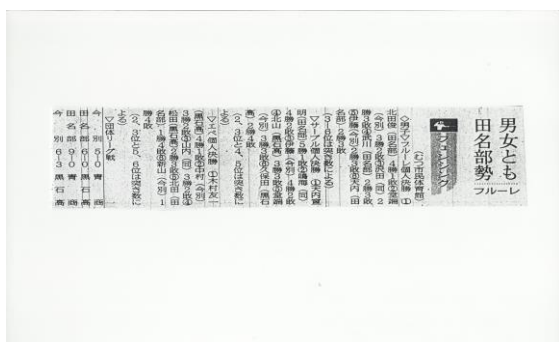 男女とも
田名部勢
フルーレ
フェンシング
(むつ市民体育館)
◇男子▽フルーレ個人決勝 ①
北田俊(田名部)4勝1敗②
(今別)3勝2敗③
勝3敗④
⑤伊藤(今別)2勝3敗⑥天内(田
名部)2勝3敗
(3~6位は突き数による)
▽サーブル個人決勝 ①天内直
明(田名部)5勝1敗②鳴海(同)
4勝2敗③伊藤(今別)4勝2敗
④北山(黒石高)3勝3敗⑤
(今別)3勝3敗⑥久保田(黒石
高)2勝4敗
(2、3位と4、5位は突き数に
よる)
▽エペ個人決勝 ①木村友一
(黒石高)4勝1敗②中村(今別)
3勝2敗③山内(同)3勝2敗④
松田(黒石高)3勝2敗⑤北田(田
名部)1勝4敗⑥新山(今別)1
勝4敗
(2、3位と5、6位は突き数に
よる)
▽団体リーグ戦
今別 5-0 青商
田名部 6-3 黒石高
田名部 9-0 青商
今別 6-3 黒石高